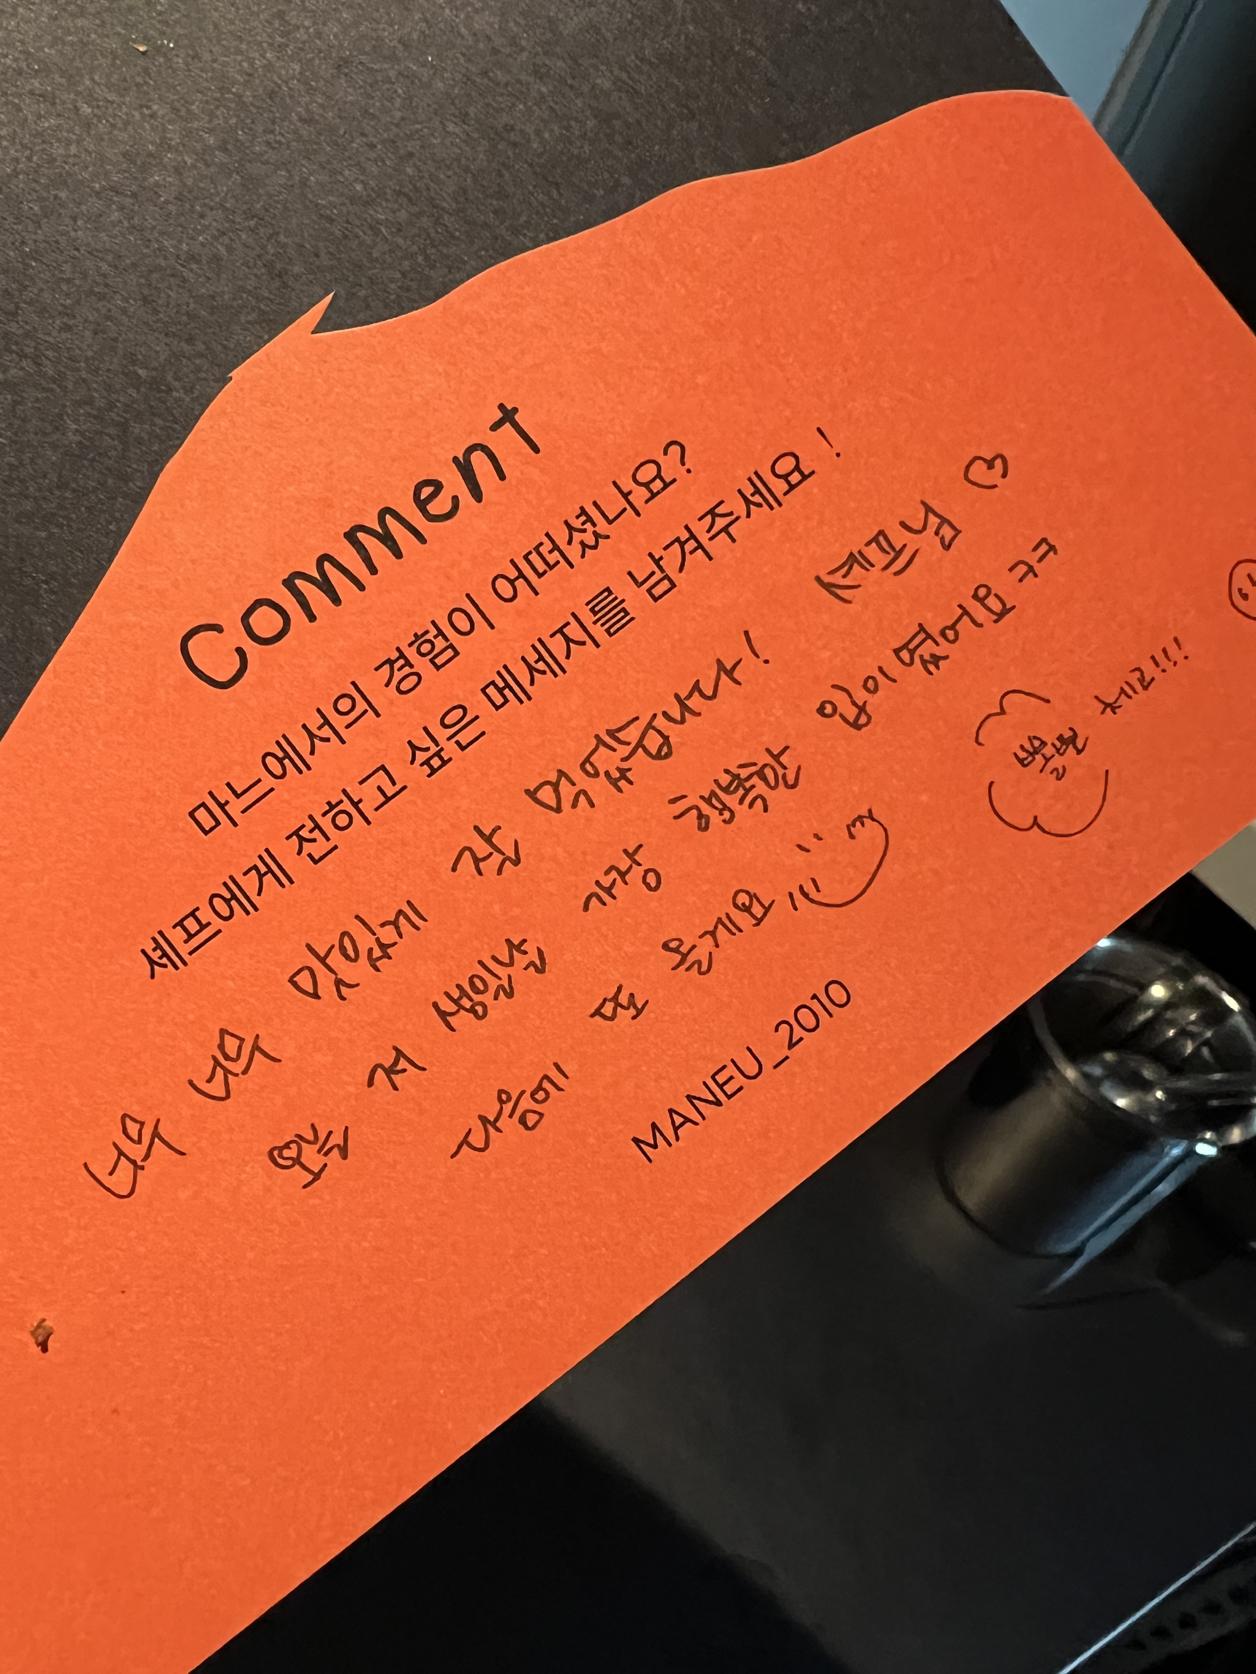 Comment
마느에서의 경험이 어떠셨나요?
셰프에게 전하고 싶은 메세지를 남겨주세요!
너무 너무 맛있게 잘 먹었습니다! 셰프님 ♡
오늘 저 생일날 가장 행복한 입이였어요 ㅋㅋ
다음에 또 올게요
체리!!!
MANEU_2010